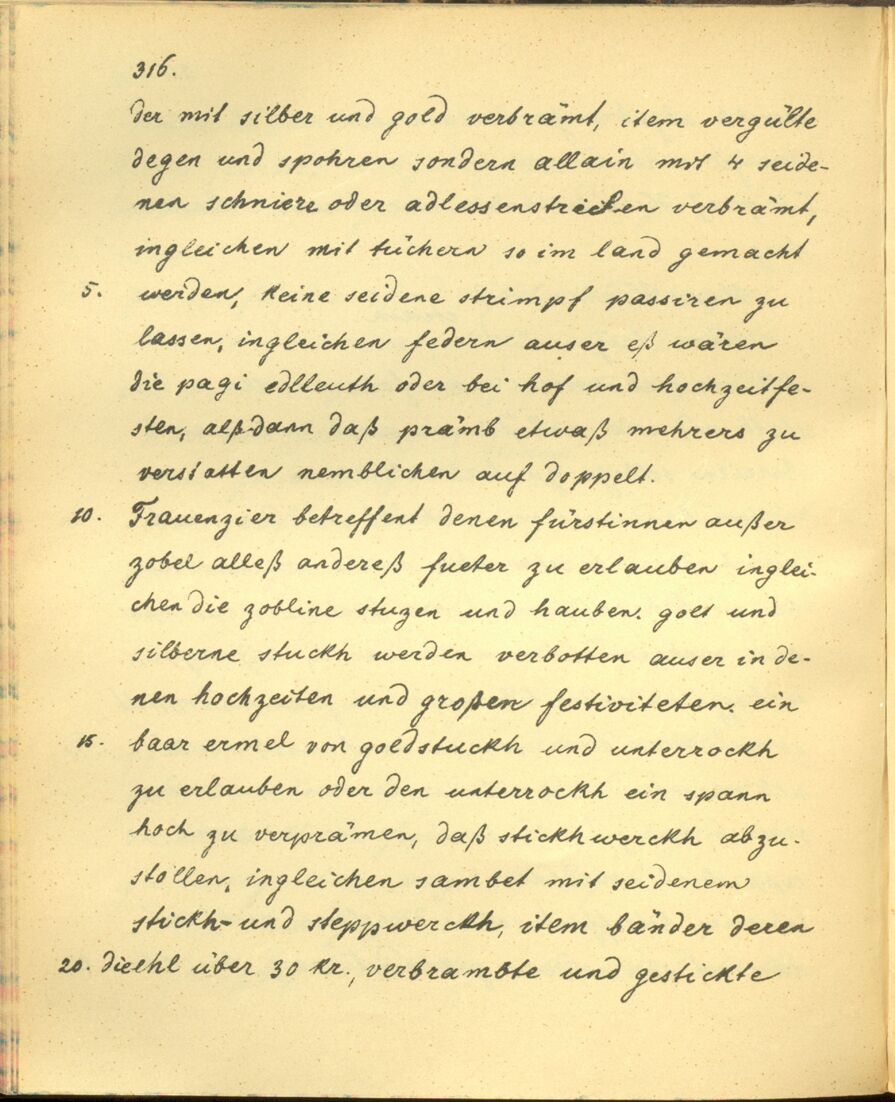 316.
der mit silber und gold verbrämt, item vergülte
degen und spohren sondern allain mit 4 seide-
nen schniere oder adlessenstreifen verbrämt,
ingleichen mit tüchern so im land gemacht
5. werden, keine seidene strimpf passiren zu
lassen, ingleichen federn auser eß wären
die pagi edlleuth oder bei hof und hochzeitfe-
sten, alßdann daß prämb etwaß mehrers zu
verstatten nemblichen auf doppelt.
10. Frauenzier betreffent denen fürstinnen außer
zobel alleß andereß fueter zu erlauben inglei-
chen die zobline stuzen und hauben. golt und
silberne stuckh werden verbotten auser in de-
nen hochzeiten und großen festiviteten. ein
15. baar ermel von goldstuckh und unterrockh
zu erlauben oder den unterrockh ein spann
hoch zu verprämen, daß stickhwerckh abzu-
stöllen, ingleichen sambet mit seidenem
stickh- und steppwerckh, item bänder deren
20. die ehl über 30 kr., verbrambte und gestickte